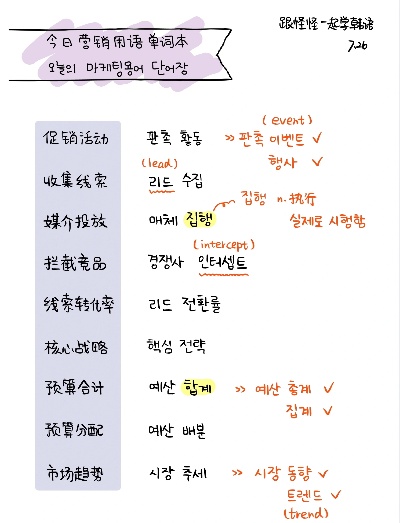 跟怪怪一起学韩语
7.26
今日营销用语单词本
오늘의 마케팅용어 단어장
(event)
促销活动 판촉 활동 >> 판촉 이벤트 ✓
행사 ✓
(lead)
收集线索 리드 수집
집행 n.执行
媒介投放 매체 집행 실제로 시행함
(intercept)
拦截竞品 경쟁사 인터셉트
线索转化率 리드 전환률
核心战略 핵심 전략
预算合计 예산 합계 >> 예산 총계 ✓
집계 ✓
预算分配 예산 배분
市场趋势 시장 추세 >> 시장 동향 ✓
트렌드 ✓
(trend)